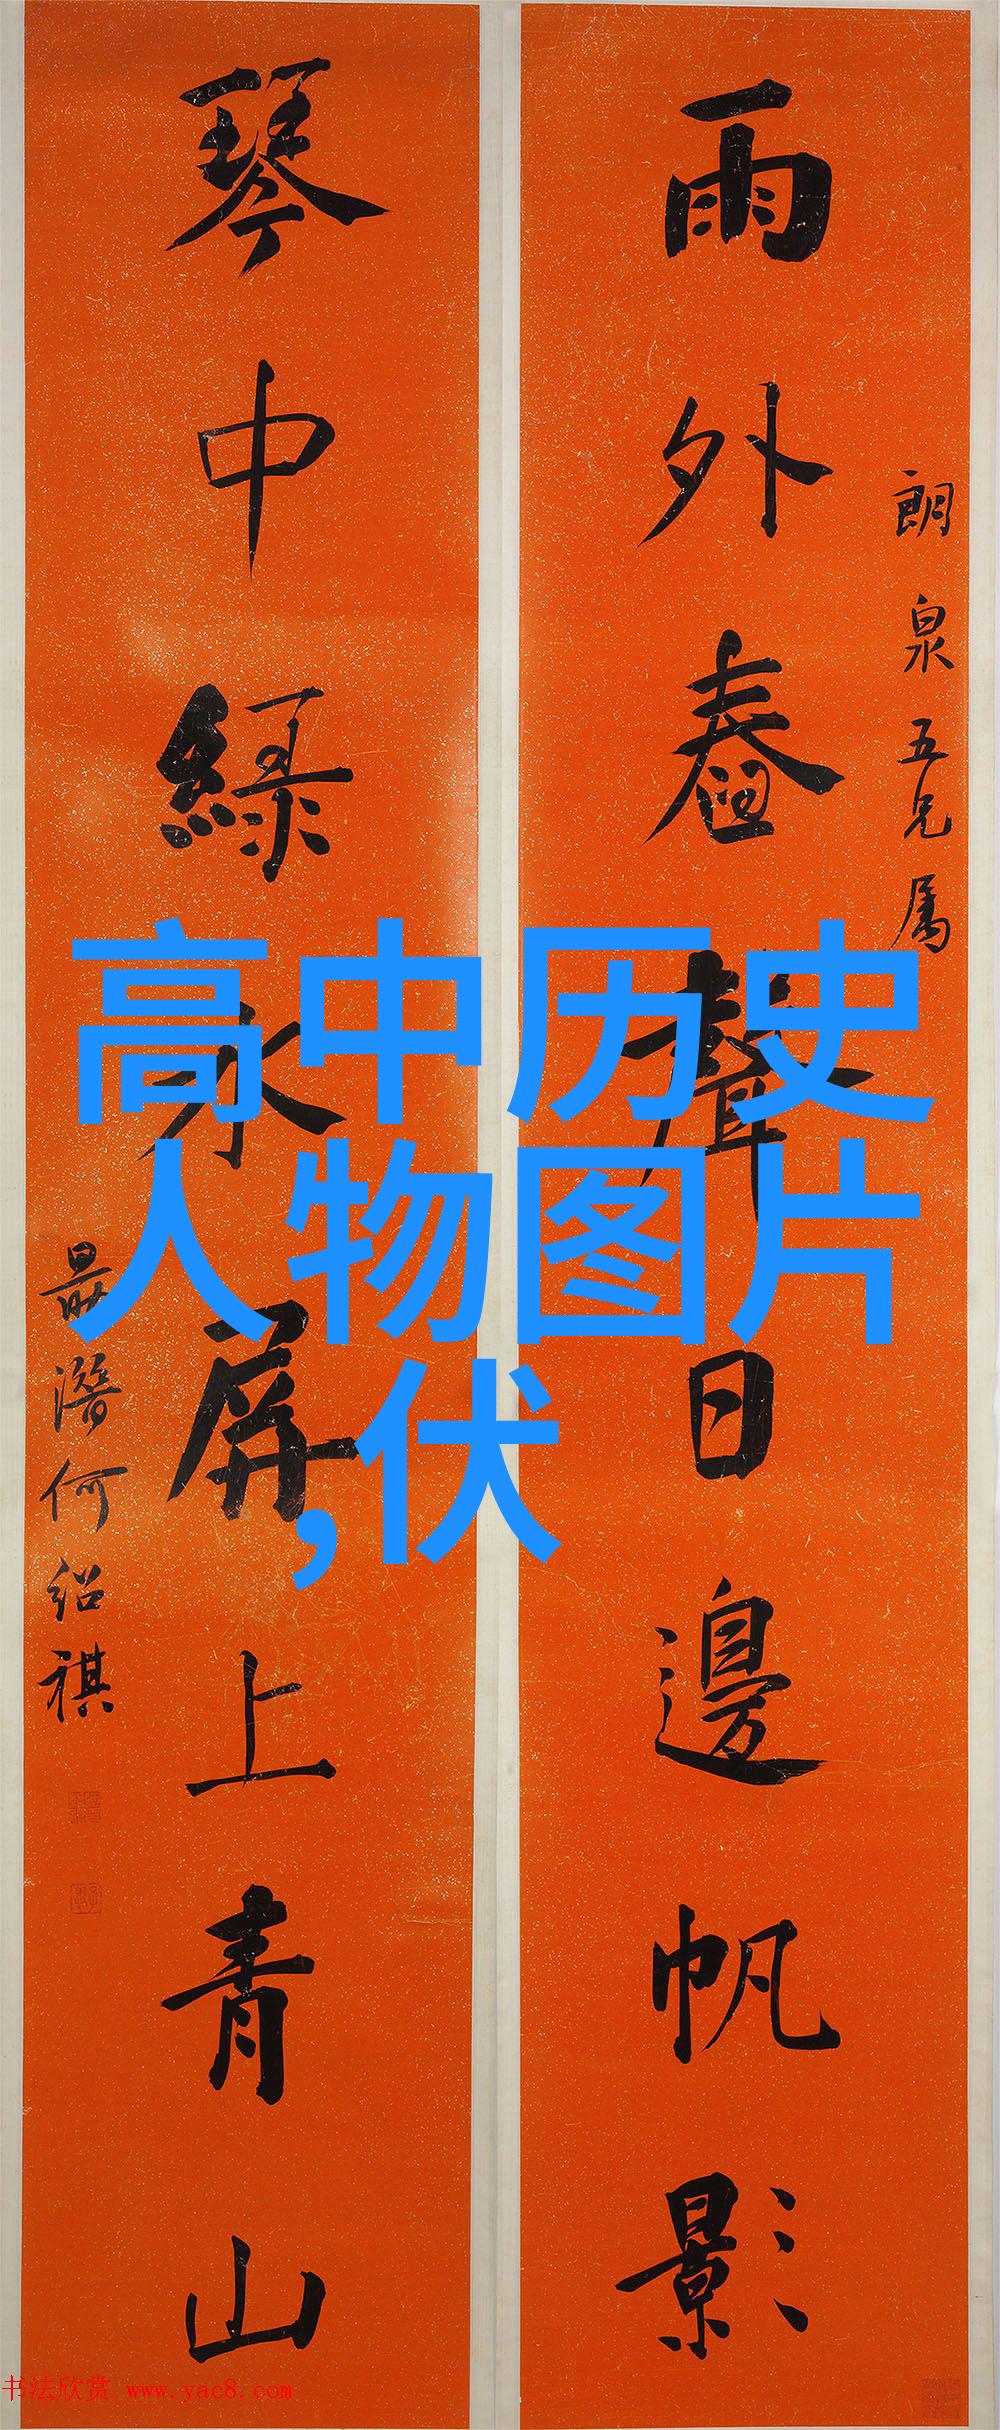 朗泉五兄属
雨外舂聲日邊帆影
琴中緑水屏上青山
勗潛何紹祺
高中历史
人物图片
,伏
书法欣赏 www.yac8.com